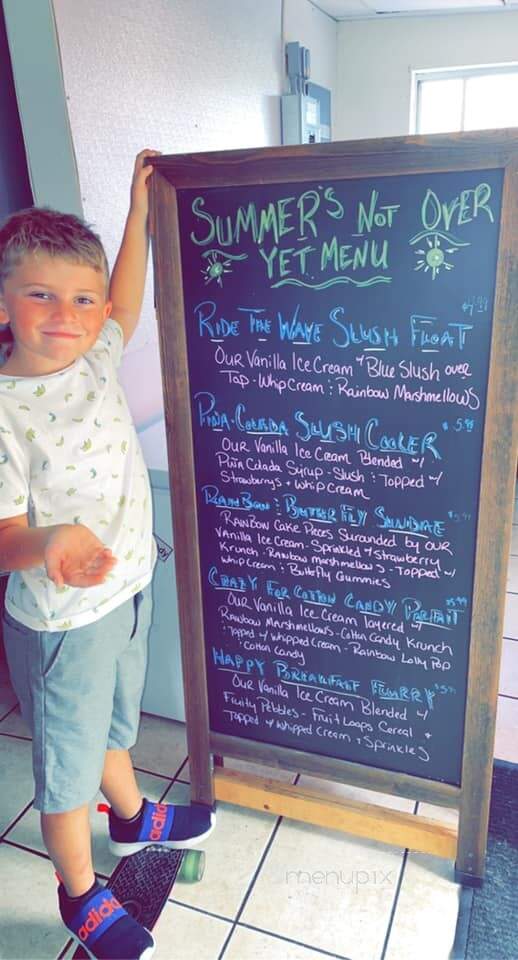 SUMMER'S NOT OVER
YET MENU
RIDE THE WAVE SLUSH FLOAT
OUR Vanilla Ice Cream w/ Blue Slush over
Top - Whip Cream : Rainbow Marshmellows
PINA-COLADA SLUSH COOLER 5.99
OUR Vanilla Ice Cream Blended w/
Pina Colada Syrup - Slush : Topped w/
Strawberrys + whip cream
RAINBOW : BUTTERFLY SUNDAE
RAINBOW Cake Peces Surounded by OUR
Vanilla Ice Cream - Sprinkled w/ strawberry
Krunch - Rainbow marshmellows - Topped w/
whip Cream : Butterfly Gummies
CRAZY FOR COTTON CANDY PARFAIT $5.99
OUR Vanilla Ice Cream layered w/
Rainbow Marshmellows - Cotton Candy Krunch
: Topped w/ whipped Cream - Rainbow Lolly Pop
: Cotton Candy
HAPPY BREAKFAST FLURRY
OUR Vanilla Ice Cream Blended w/
Fruity Pebbles - Fruit Loops Cereal +
Topped w/ whipped Cream + Sprinkles
adidas
adidas
menupix